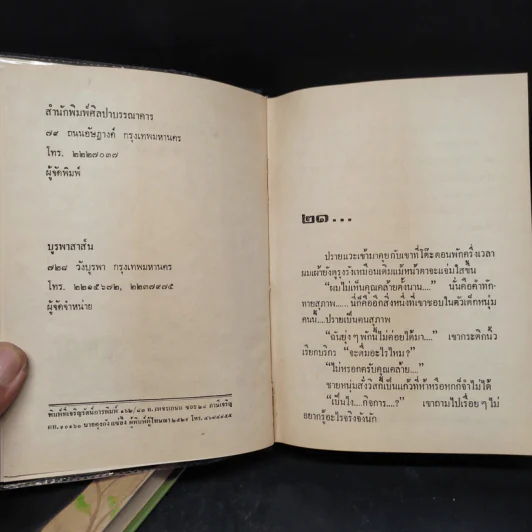 สำนักพิมพ์ศิลปาบรรณาคาร
๗๙ ถนนอัษฎางค์ กรุงเทพมหานคร
โทร. ๒๒๒๗๐๓๗
ผู้จัดพิมพ์
บูรพาสาส์น
๗๒๘ วังบูรพา กรุงเทพมหานคร
โทร. ๒๒๑๕๖๗๒, ๒๒๓๗๙๗๕
ผู้จัดจำหน่าย
พิมพ์ที่เจริญรัตน์การพิมพ์ ๑๖๒/๔๓ ถ. เพชรเกษม ซอย ๒๘ ภาษีเจริญ
๒๑...
ปรายแวะเข้ามาคุยกับเขาที่โต๊ะตอนพักครึ่งเวลา
ผมเผ้ายังดูรุงรังเหมือนเดิมแม้หน้าตาจะแจ่มใสขึ้น
"ผมไม่เห็นคุณคล้ายตั้งนาน...." นั่นคือคำทัก-
ทายสุภาพ..... นี่ก็คืออีกสิ่งหนึ่งที่เขาชอบในตัวเด็กหนุ่ม
คนนี้....ปรายเป็นคนสุภาพ
"ฉันยุ่งๆ พักนี้ไม่ค่อยได้มา...." เขากระดิกนิ้ว
เรียกบริกร "จะดื่มอะไรไหม?"
"ไม่หรอกครับคุณคล้าย...."
ชายหนุ่มสั่งวิสกี้เป็นแก้วที่ห้าหรือหกก็จำไม่ได้
"เป็นไง....กิจการ....?" เขาถามไปเรื่อยๆ ไม่
อยากรู้อะไรจริงจังนัก